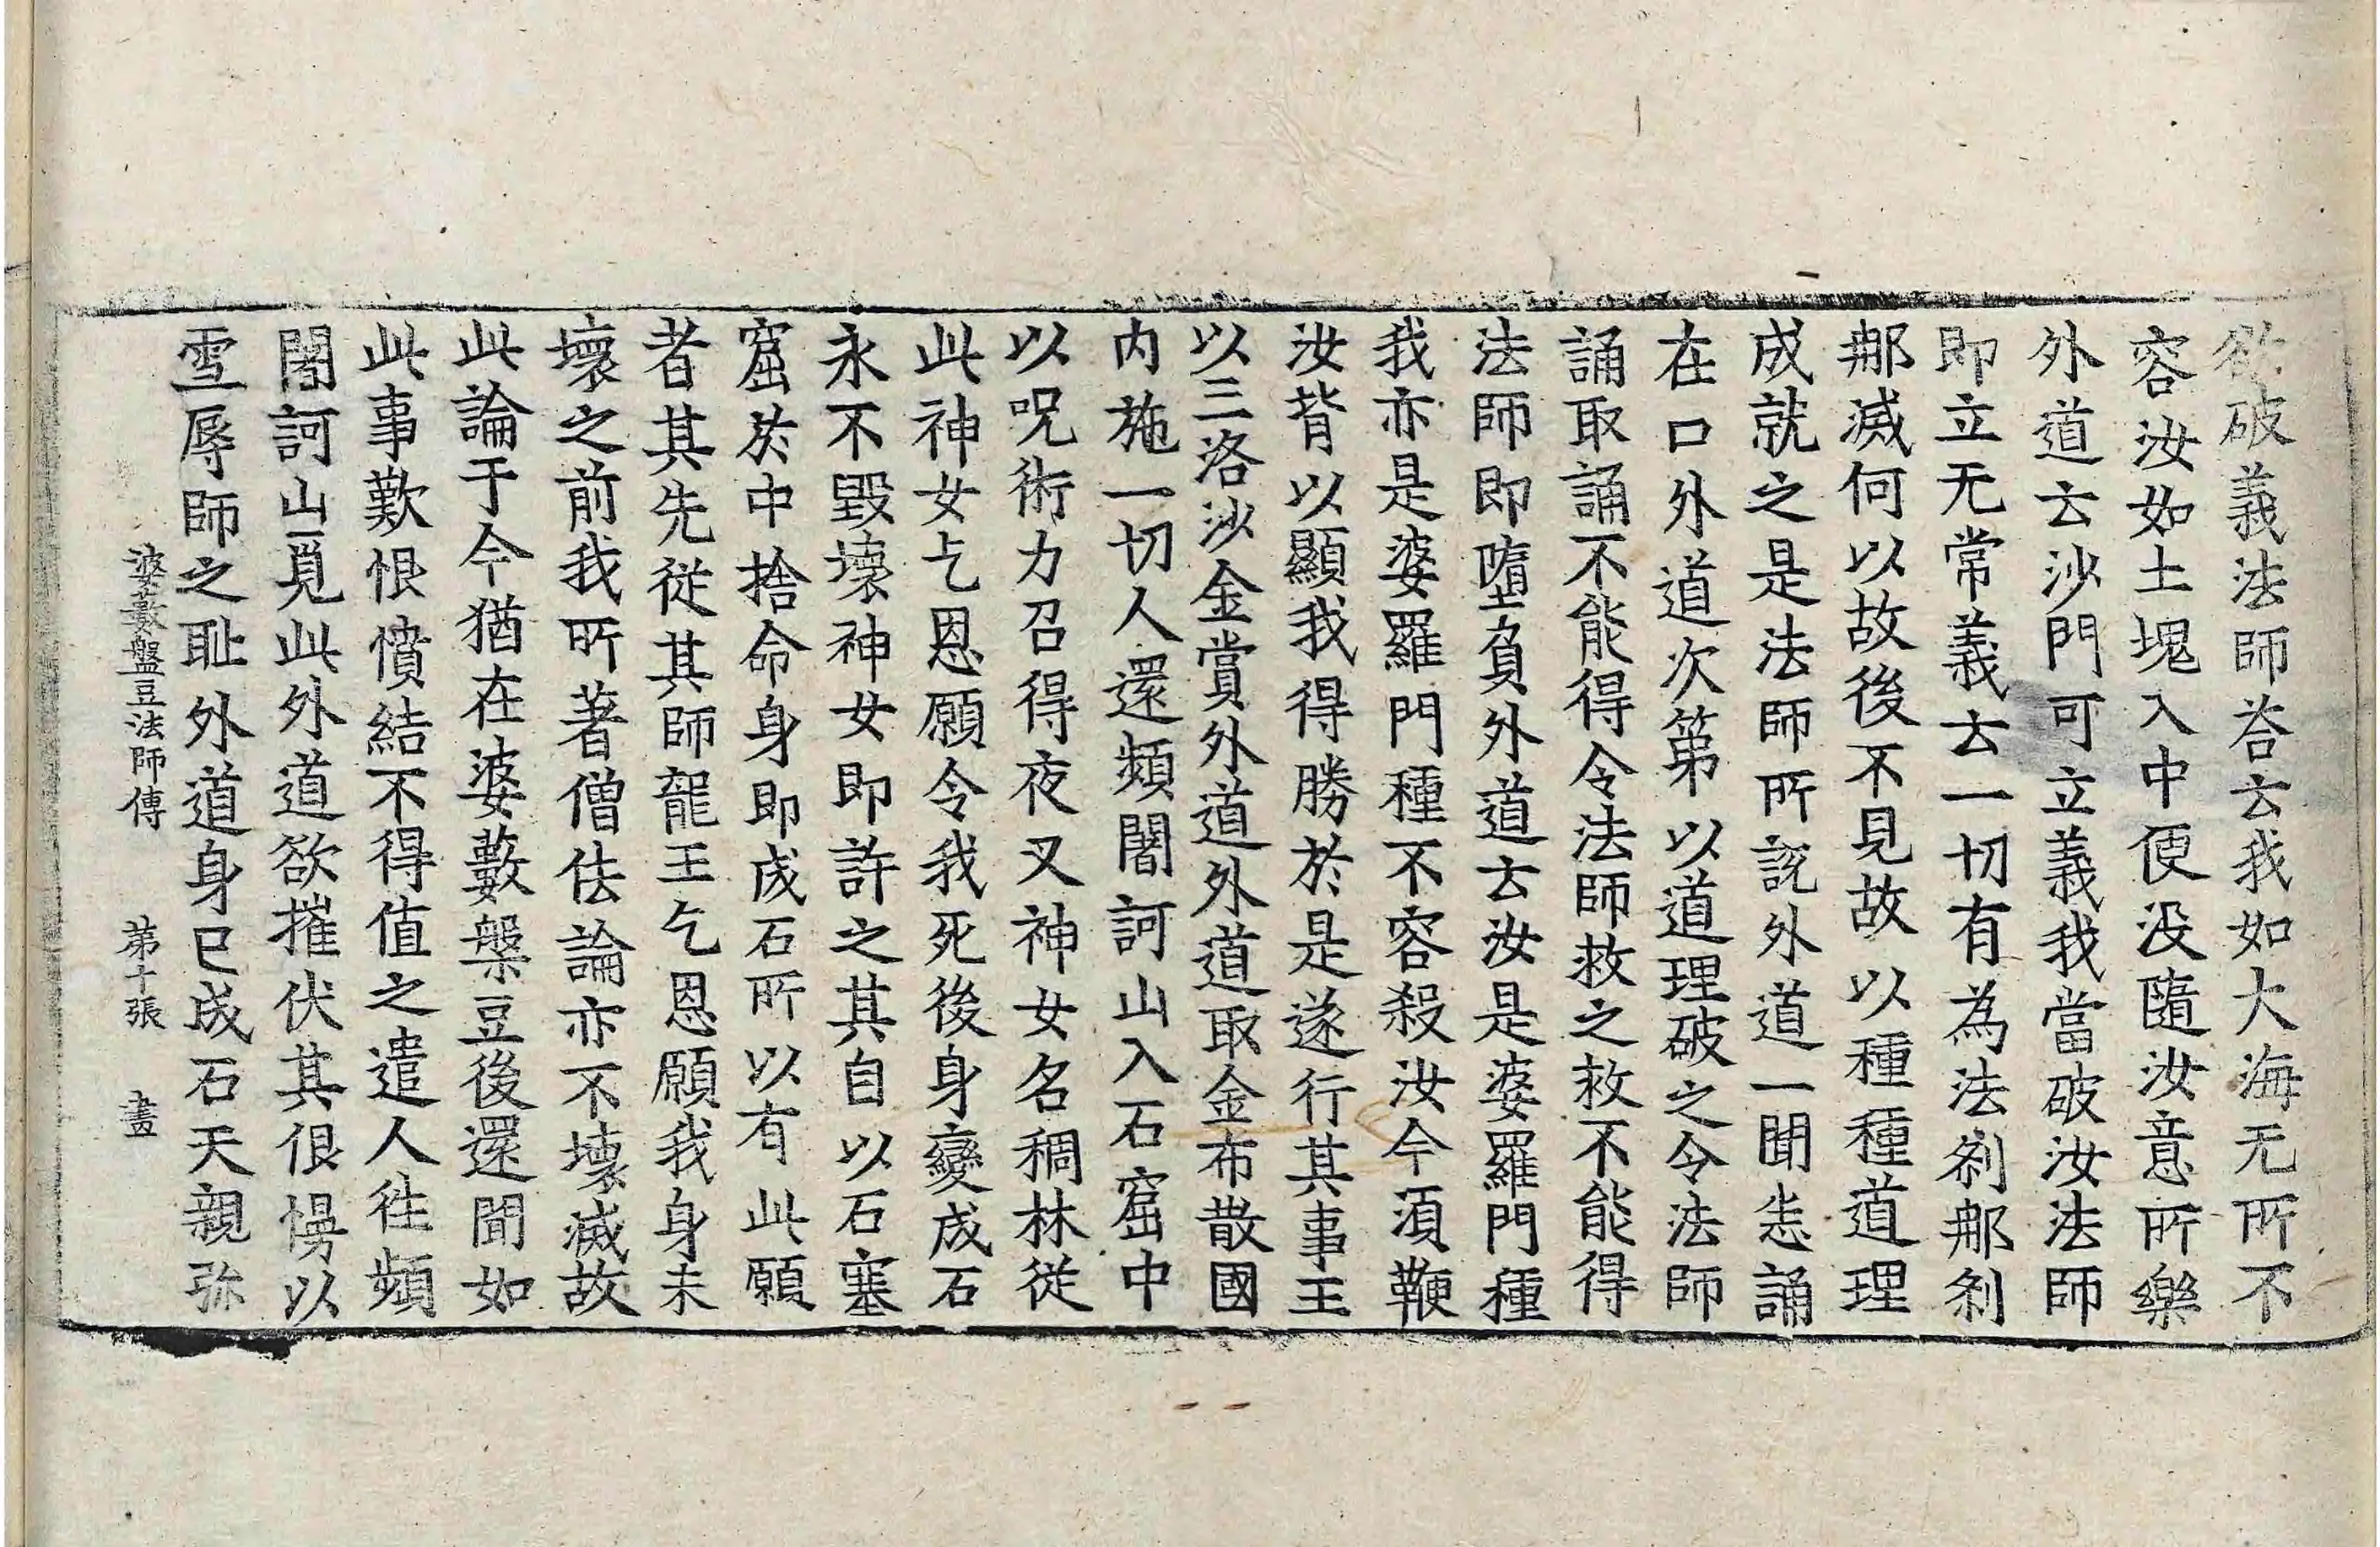 欲破義法師荅云我如大海无所不
容汝如土塊入中便没隨汝意所樂
外道云沙門可立義我當破汝法師
即立无常義云一切有為法刹郍刹
郍滅何以故後不見故以種種道理
成就之是法師所說外道一聞悉誦
在口外道次第以道理破之令法師
誦取誦不能得令法師救之救不能得
法師即墮負外道云汝是婆羅門種
我亦是婆羅門種不容殺汝今須鞭
汝背以顯我得勝於是遂行其事王
以三洛沙金賞外道外道取金布散國
内施一切人還頻闍訶山入石窟中
以呪術力召得夜叉神女名稠林從
此神女乞恩願令我死後身變成石
永不毀壞神女即許之其自以石塞
窟於中捨命身即成石所以有此願
者其先從其師龍王乞恩願我身未
壞之前我所著僧佉論亦不壞滅故
此論于今猶在婆藪槃豆後還聞如
此事歎恨憤結不得值之遣人往頻
闍訶山覓此外道欲摧伏其佷慢以
雪辱師之耻外道身已成石天親弥
婆藪盤豆法師傳 第十張 畫